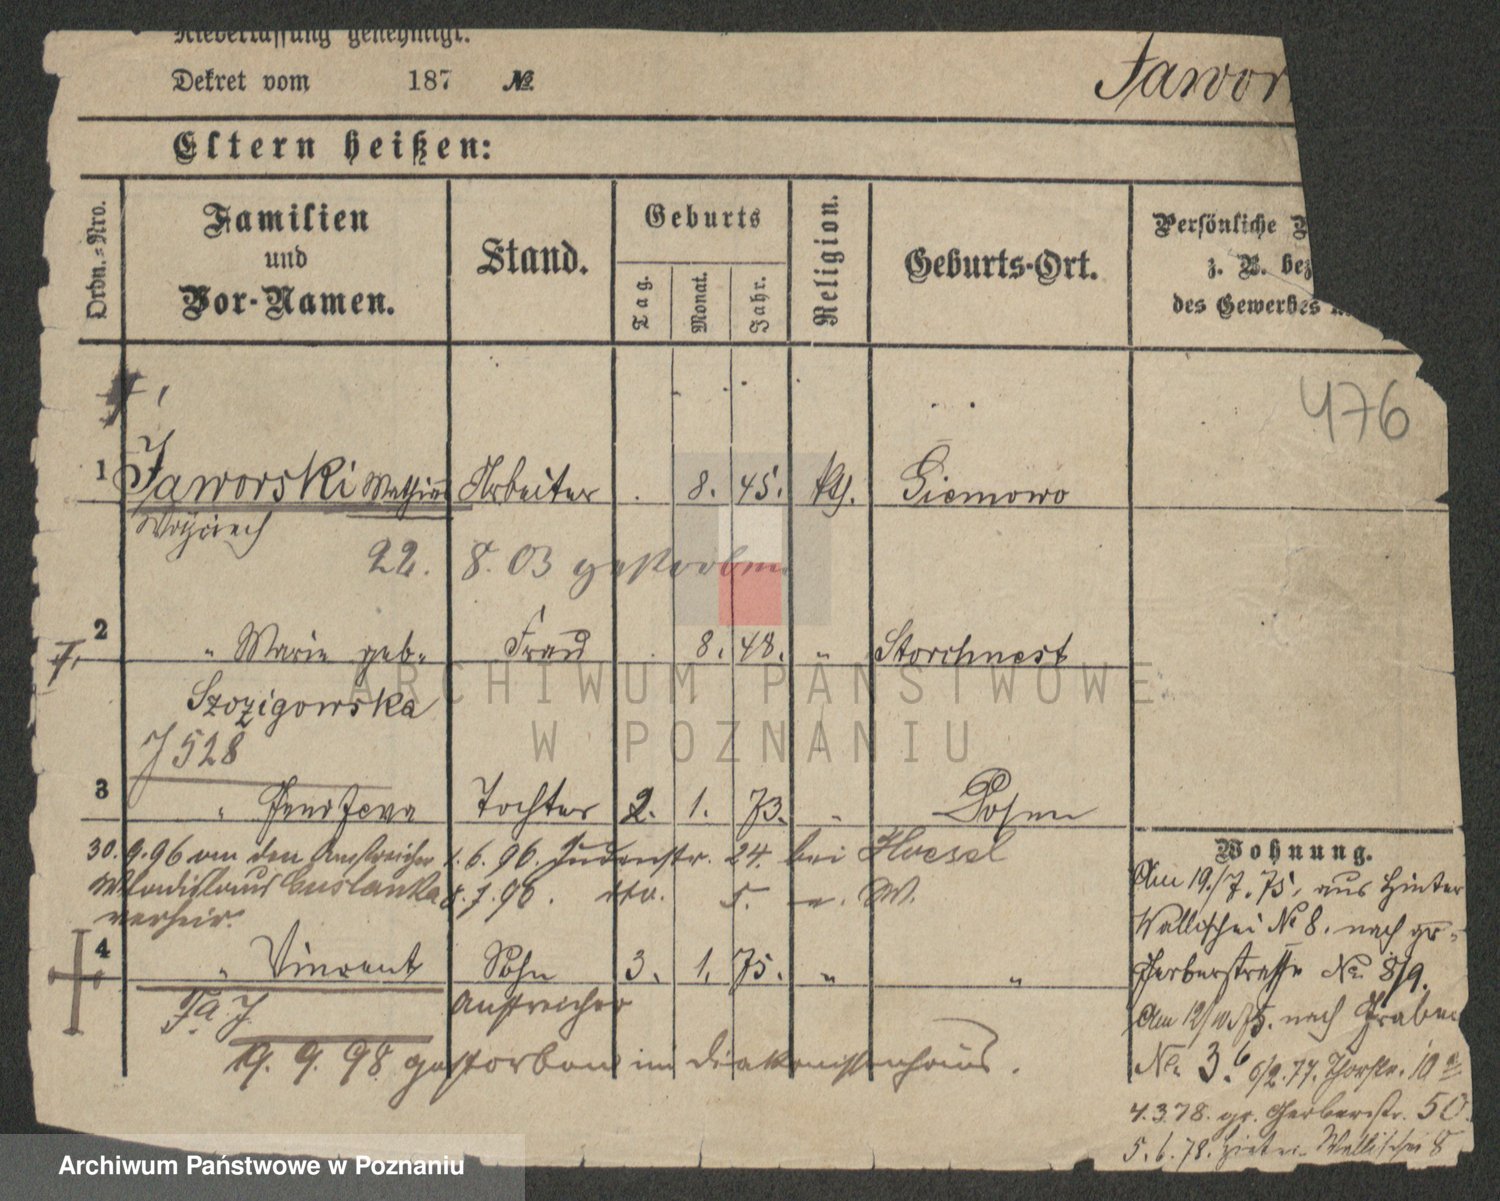 Niederlassung genehmigt.
Dekret vom 187 №
Jawor
Eltern heißen:
Ordn.-Nro.
Familien
und
Vor-Namen.
Stand.
Geburts
Tag.
Monat.
Jahr.
Religion.
Geburts-Ort.
Persönliche
z. B. bez
des Gewerbes
476
1 Jaworski Mathias Arbeiter . 8. 45. kth. Giemowo
Woyciech
22. 8. 03 gestorben
2 " Marie geb. Frau . 8. 48. " Storchnest
Szozigowska
J 528
3 " Tochter 2. 1. 73. " Posen
30. 9. 96 an den Anstreicher 1. 6. 96. Judenstr. 24. bei Hoesel
Wladislaus Cuslanka 8. 7. 96. 5. W.
verheir.
4 " Vincent Sohn 3. 1. 75. " "
Anstreicher
19. 9. 98 gestorben im Diakonissenhaus.
Wohnung.
Am 19./7. 75, aus Hinter
Wallischei № 8. nach gr.
Gerberstrasse No. 8/9.
Am 12/10. 75. nach Graben
No. 3. 6/2. 77. Thorstr. 10 a
4. 3. 78. gr. Gerberstr. 50.
5. 6. 78. Hinter Wallischei 8
ARCHIWUM PAŃSTWOWE
W POZNANIU
Archiwum Państwowe w Poznaniu